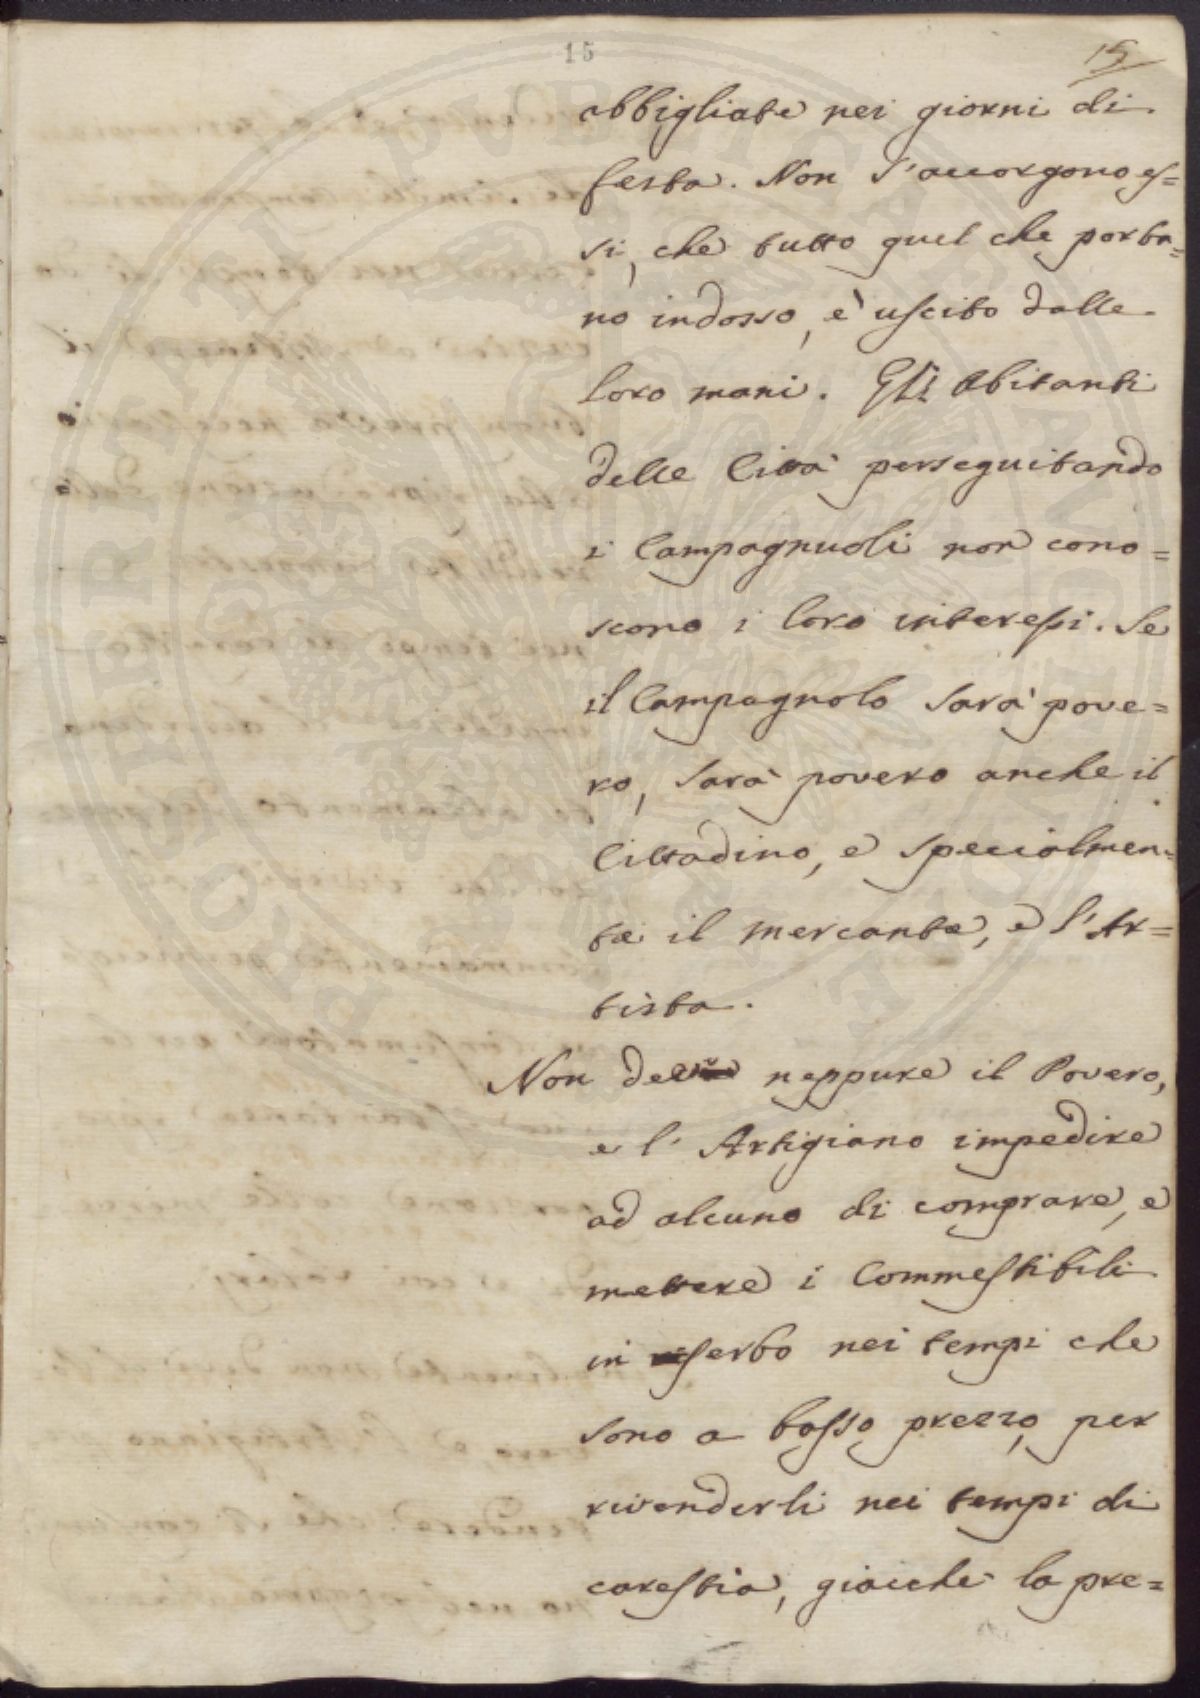 15
15
abbigliate nei giorni di
festa. Non s'accorgono es=
si, che tutto quel che porta=
no indosso, è uscito dalle
loro mani. Gli Abitanti
delle Città perseguitando
i Campagnuoli non cono=
scono i loro interessi. Se
il Campagnolo sarà pove=
ro, sarà povero anche il
Cittadino, e specialmen=
te il mercante, e l'Ar=
tista.
Non deve neppure il Povero,
e l'Artigiano impedire
ad alcuno di comprare, e
mettere i Commestibili
in serbo nei tempi che
sono a basso prezzo, per
rivenderli nei tempi di
carestia, giacchè la pre=